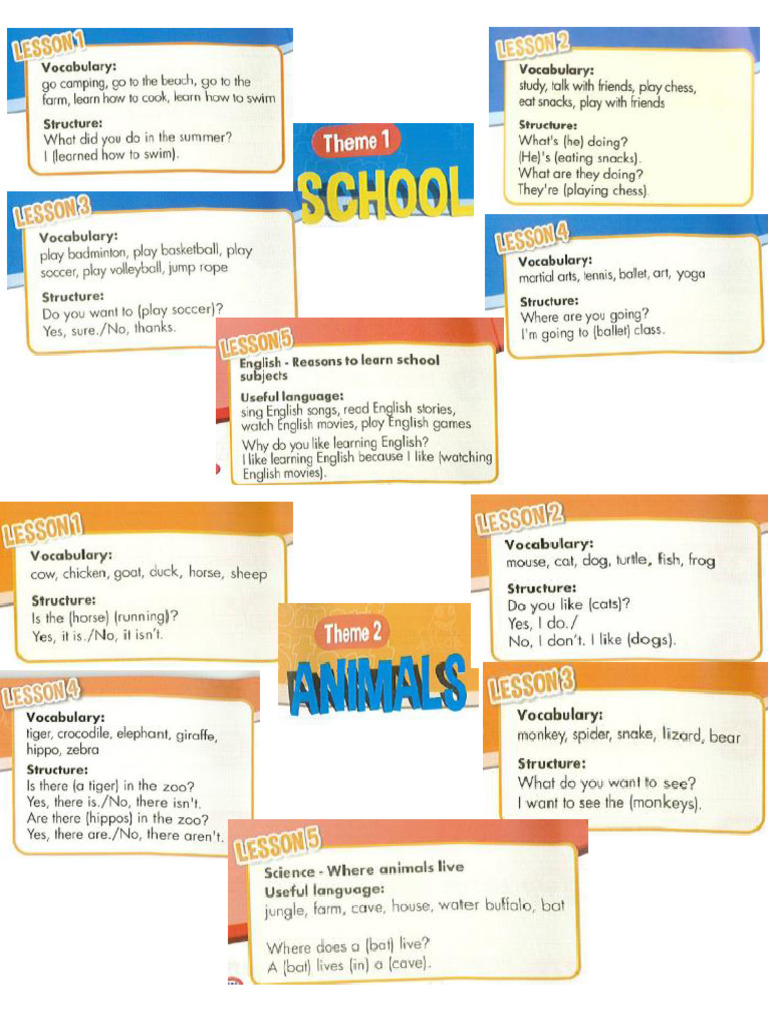 LESSON 1
Vocabulary:
go camping, go to the beach, go to the
farm, learn how to cook, learn how to swim
Structure:
What did you do in the summer?
I (learned how to swim).
LESSON 2
Vocabulary:
study, talk with friends, play chess,
eat snacks, play with friends
Structure:
What's (he) doing?
(He)'s (eating snacks).
What are they doing?
They're (playing chess).
Theme 1
SCHOOL
LESSON 3
Vocabulary:
play badminton, play basketball, play
soccer, play volleyball, jump rope
Structure:
Do you want to (play soccer)?
Yes, sure./No, thanks.
LESSON 4
Vocabulary:
martial arts, tennis, ballet, art, yoga
Structure:
Where are you going?
I'm going to (ballet) class.
LESSON 5
English - Reasons to learn school
subjects
Useful language:
sing English songs, read English stories,
watch English movies, play English games
Why do you like learning English?
I like learning English because I like (watching
English movies).
LESSON 1
Vocabulary:
cow, chicken, goat, duck, horse, sheep
Structure:
Is the (horse) (running)?
Yes, it is./No, it isn't.
LESSON 2
Vocabulary:
mouse, cat, dog, turtle, fish, frog
Structure:
Do you like (cats)?
Yes, I do./
No, I don't. I like (dogs).
Theme 2
ANIMALS
LESSON 4
Vocabulary:
tiger, crocodile, elephant, giraffe,
hippo, zebra
Structure:
Is there (a tiger) in the zoo?
Yes, there is./No, there isn't.
Are there (hippos) in the zoo?
Yes, there are./No, there aren't.
LESSON 3
Vocabulary:
monkey, spider, snake, lizard, bear
Structure:
What do you want to see?
I want to see the (monkeys).
LESSON 5
Science - Where animals live
Useful language:
jungle, farm, cave, house, water buffalo, bat
Where does a (bat) live?
A (bat) lives (in) a (cave).